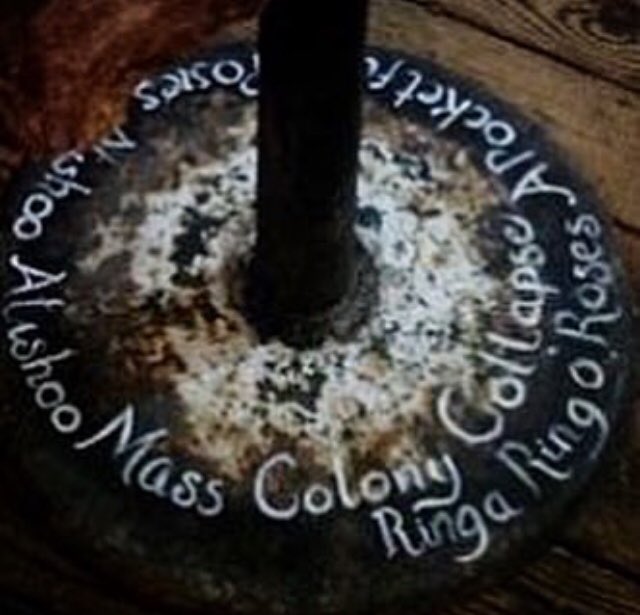 Ringa Ring O Roses A Pocket Posies Atishoo Atishoo Mass Colony Collapse